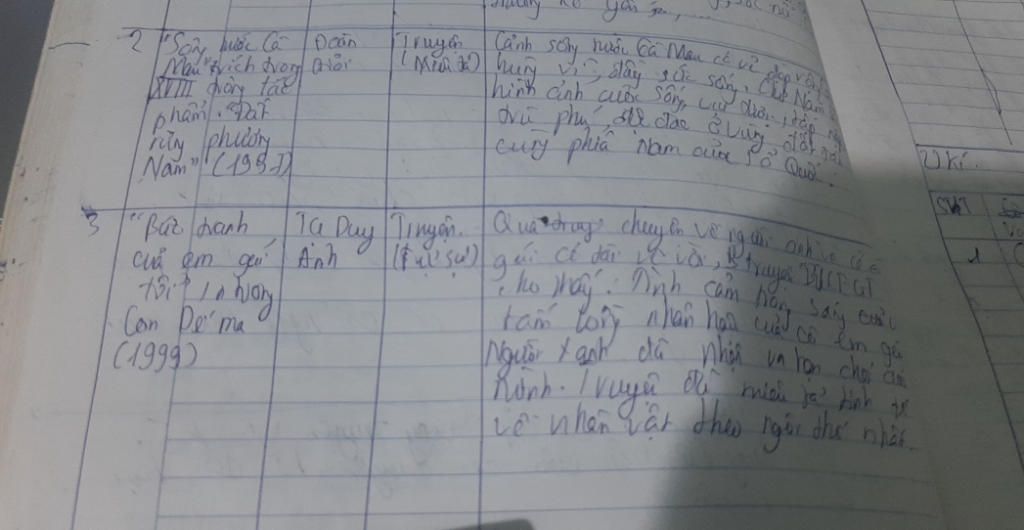 2
"Sông nước Cà
Mau" trích trong
XVIII trong tác
phẩm "Đất
rừng phương
Nam" (1957)
Đoàn
Giỏi
Truyện
(Miêu tả)
Cảnh sông nước Cà Mau có vẻ đẹp rộng
hùng vĩ, đầy sức sống, Chợ Năm
hình ảnh cuộc sống tấp
trù phú, độc đáo ở vùng đất
cùng phía Nam của Tổ Quốc.
3
"Bức tranh
của em gái
tôi" In trong
Con Dế ma
(1999)
Tạ Duy
Anh
Truyện
(Tự sự)
Qua chuyện về người anh và cô e
gái có tài vẽ truyện BTCEGT
cho thấy: Tình cảm trong sáng
tấm lòng nhân hậu của cô em gá
Người anh đã nhận ra hạn chế
mình. Truyện đã miêu tả tinh tế
về nhân vật theo ngôi thứ nhất.
2) Kí.
STT
1